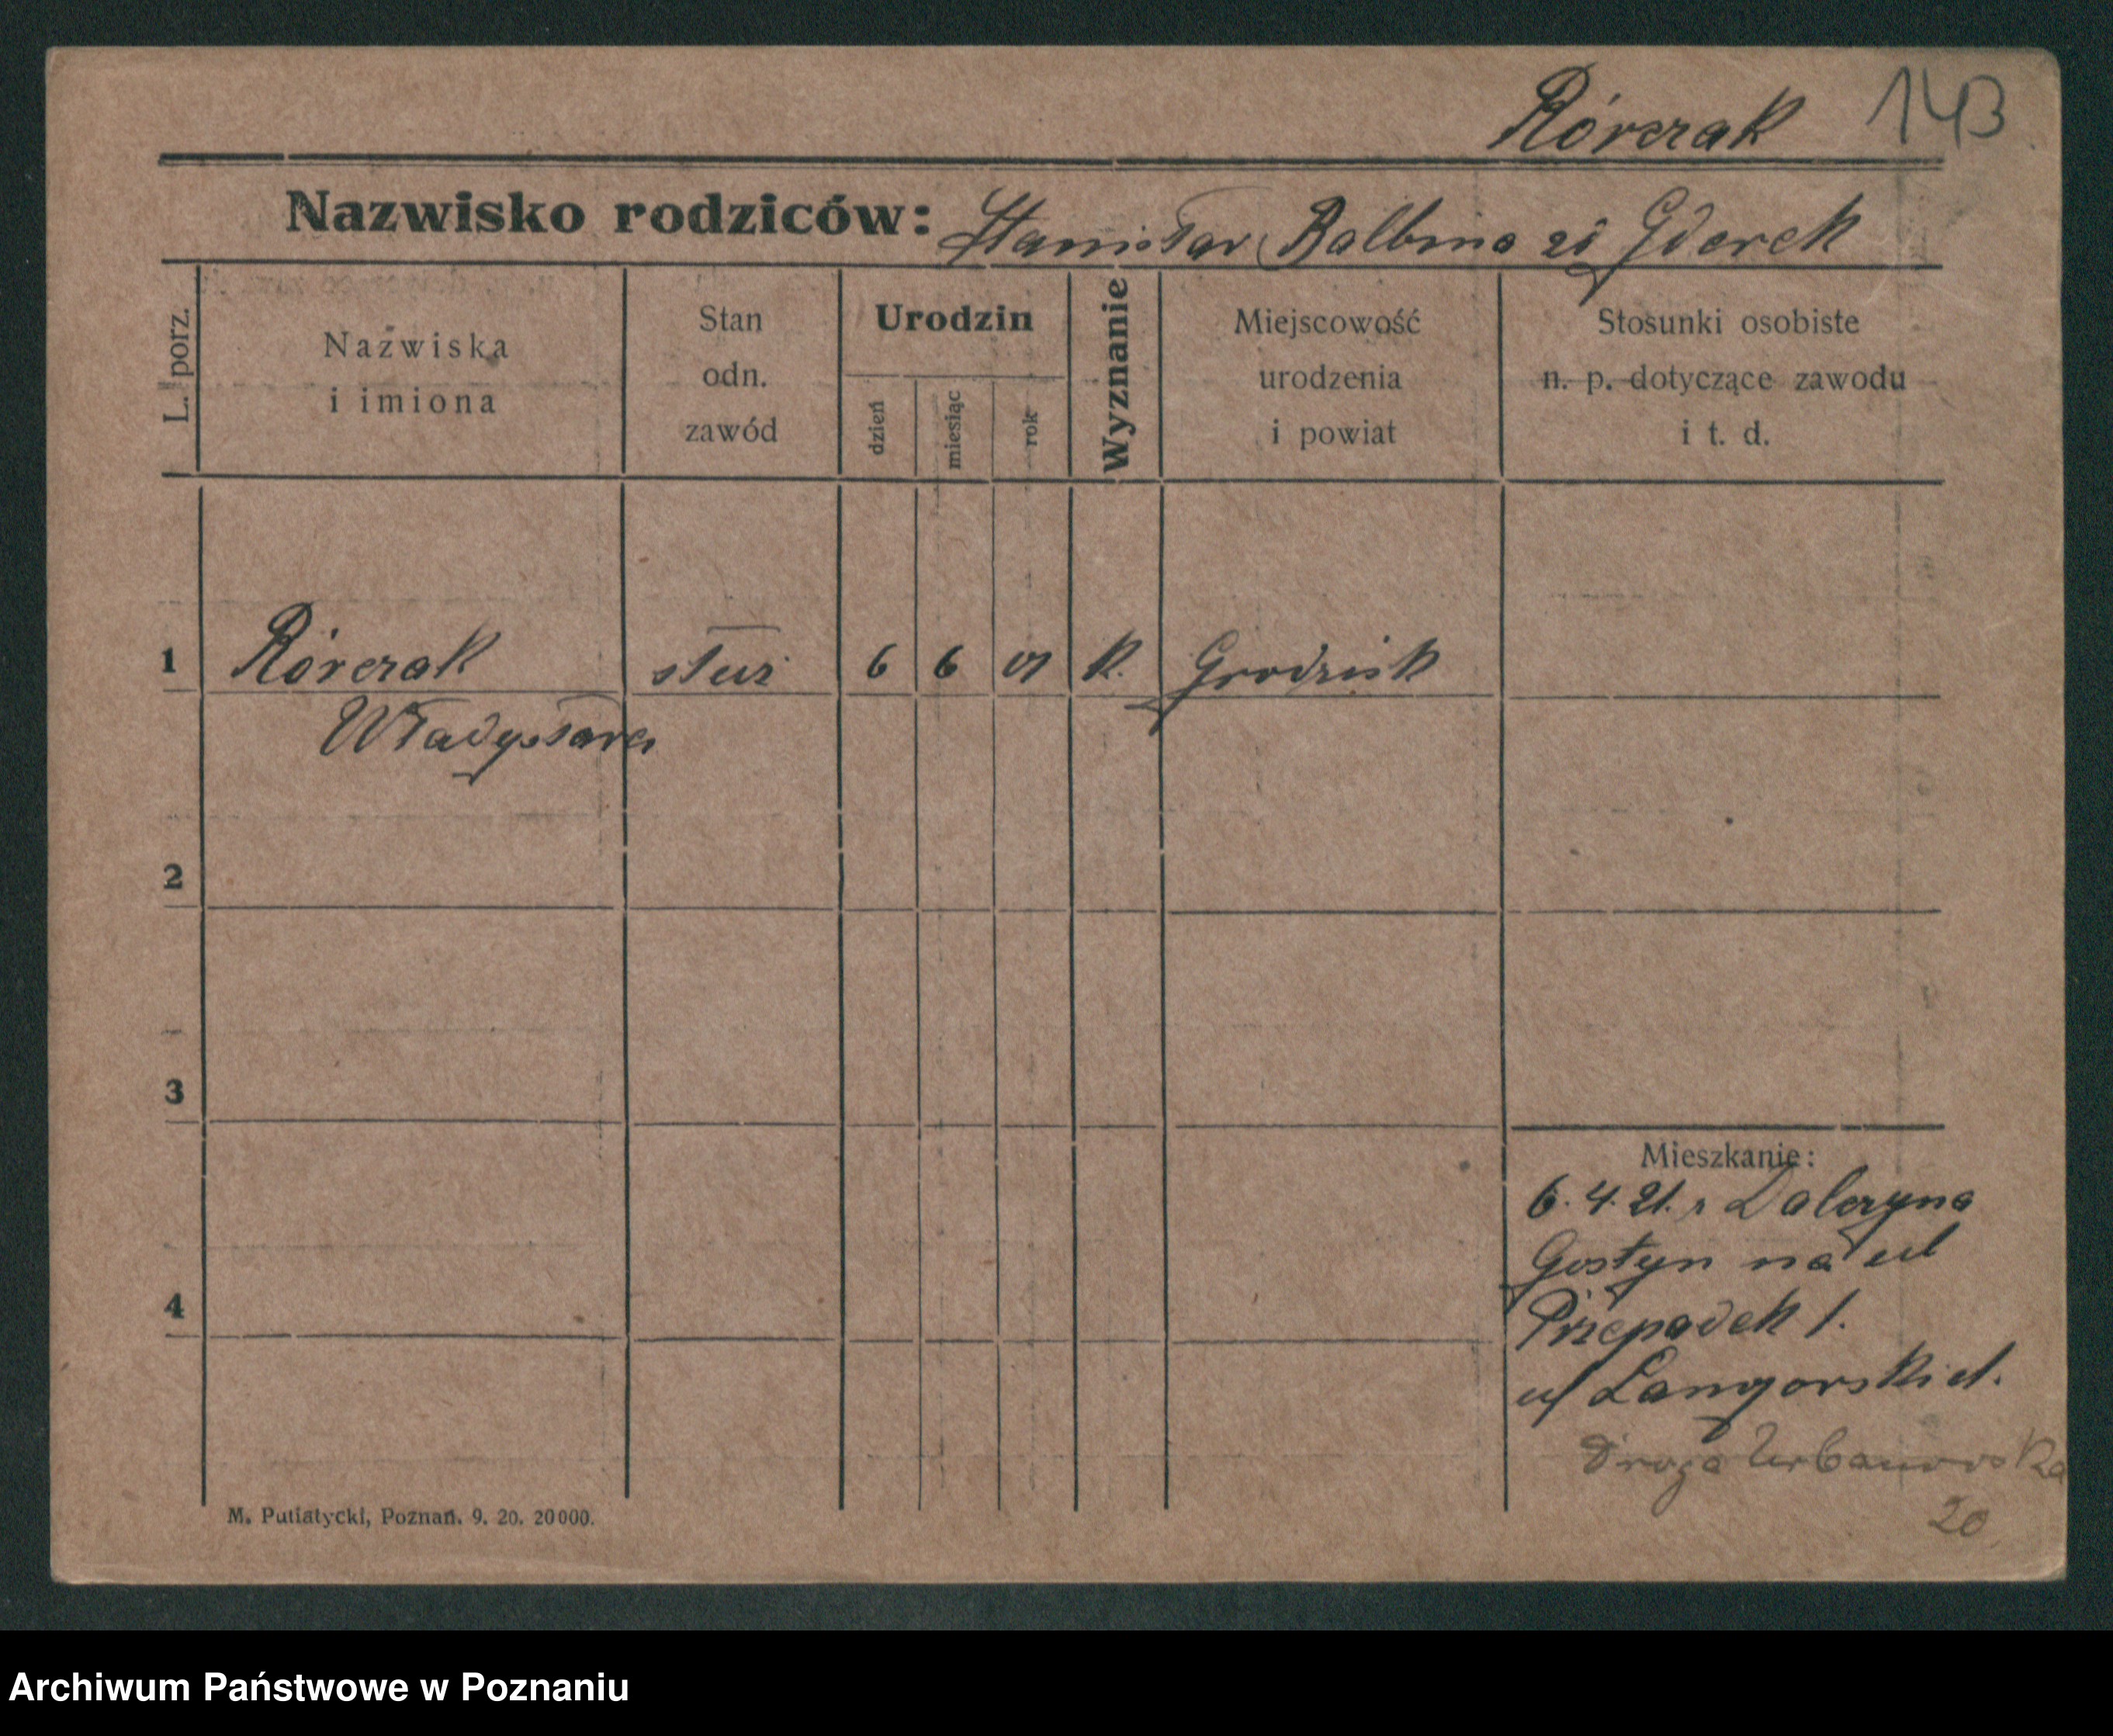 Rórczak 143
Nazwisko rodziców: Stanisław Balbina zd Gderek
L. porz.
Nazwiska
i imiona
Stan
odn.
zawód
Urodzin
dzień
miesiąc
rok
Wyznanie
Miejscowość
urodzenia
i powiat
Stosunki osobiste
n. p. dotyczące zawodu
i t. d.
1 Rórczak służ 6 6 01 k. Grodzisk
Władysława
2
3
4
Mieszkanie:
6. 4. 21. z Daleszyna
Gostyn na ul
Przepadek 1.
ul
Droga Urbanowska
20
M. Putiatycki, Poznań. 9. 20. 20000.
Archiwum Państwowe w Poznaniu